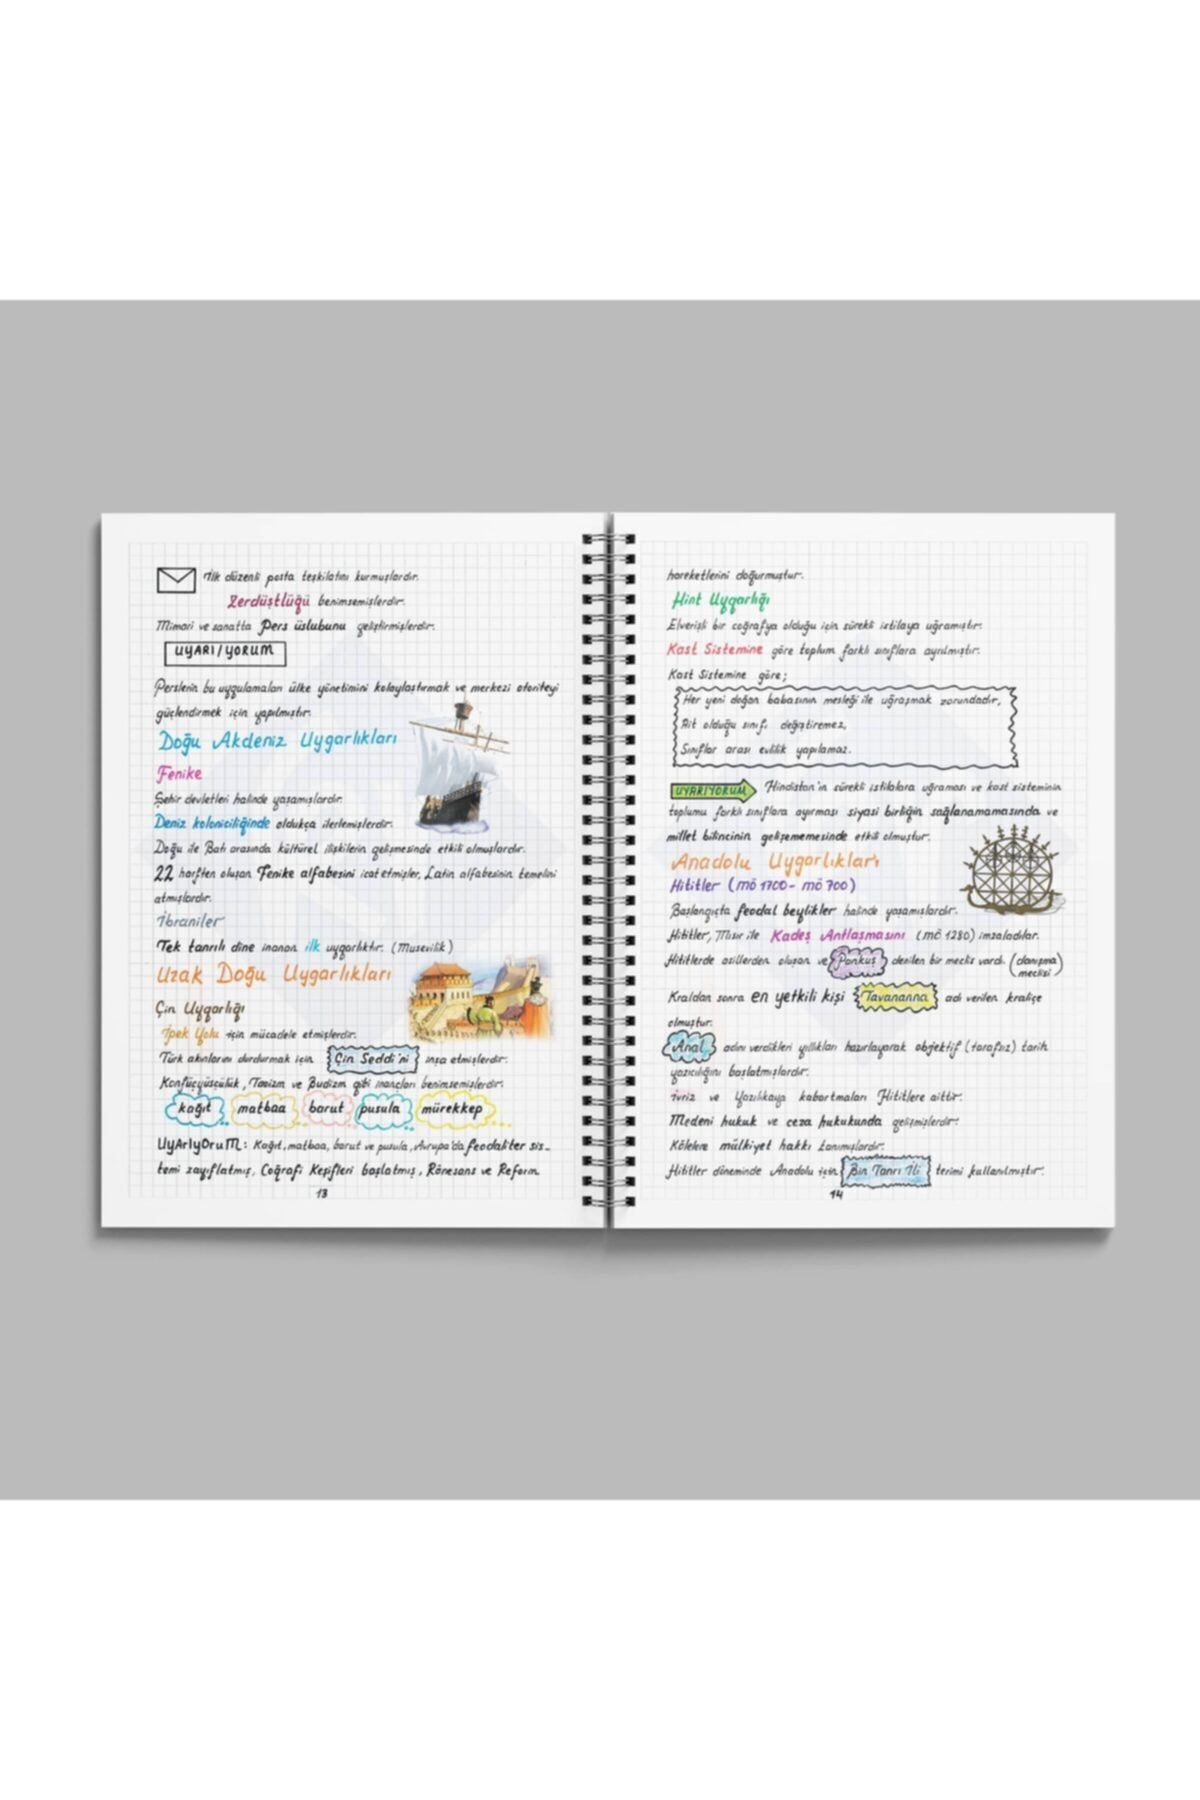 İlk düzenli posta teşkilatını kurmuşlardır.
Zerdüştlüğü benimsemişlerdir.
Mimari ve sanatta Pers üslubunu geliştirmişlerdir.
UYARI/YORUM
Perslerin bu uygulamaları ülke yönetimini kolaylaştırmak ve merkezi otoriteyi
güçlendirmek için yapılmıştır.
Doğu Akdeniz Uygarlıkları
Fenike
Şehir devletleri halinde yaşamışlardır.
Deniz koloniciliğinde oldukça ilerlemişlerdir.
Doğu ile Batı arasında kültürel ilişkilerin gelişmesinde etkili olmuşlardır.
22 harften oluşan Fenike alfabesini icat etmişler, Latin alfabesinin temelini
atmışlardır.
İbraniler
Tek tanrılı dine inanan ilk uygarlıktır. (Musevilik)
Uzak Doğu Uygarlıkları
Çin Uygarlığı
İpek Yolu için mücadele etmişlerdir.
Türk akınlarını durdurmak için Çin Seddi'ni inşa etmişlerdir.
Konfüçyüsçülük, Taoizm ve Budizm gibi inançları benimsemişlerdir.
kağıt matbaa barut pusula mürekkep
UyArIyOruM: Kağıt, matbaa, barut ve pusula, Avrupa'da feodalite sis-
temi zayıflatmış, Coğrafi Keşifleri başlatmış, Rönesans ve Reform
13
hareketlerini doğurmuştur.
Hint Uygarlığı
Elverişli bir coğrafya olduğu için sürekli istilaya uğramıştır.
Kast Sistemine göre toplum farklı sınıflara ayrılmıştır.
Kast Sistemine göre;
Her yeni doğan babasının mesleği ile uğraşmak zorundadır,
Ait olduğu sınıfı değiştiremez,
Sınıflar arası evlilik yapılamaz.
UYARIYORUM Hindistan'ın sürekli istilalara uğraması ve kast sisteminin
toplumu farklı sınıflara ayırması siyasi birliğin sağlanamamasında ve
millet bilincinin gelişememesinde etkili olmuştur.
Anadolu Uygarlıkları
Hititler (MÖ 1700- MÖ 700)
Başlangıçta feodal beylikler halinde yaşamışlardır.
Hititler, Mısır ile Kadeş Antlaşmasını (MÖ 1280) imzaladılar.
Hititlerde asillerden oluşan ve Pankuş denilen bir meclis vardı. (danışma
meclisi)
Kraldan sonra en yetkili kişi Tavananna adı verilen kraliçe
olmuştur.
Anal adını verdikleri yıllıkları hazırlayarak objektif (tarafsız) tarih
yazıcılığını başlatmışlardır.
İvriz ve Yazılıkaya kabartmaları Hititlere aittir.
Medeni hukuk ve ceza hukukunda gelişmişlerdir.
Kölelere mülkiyet hakkı tanımışlardır.
Hititler döneminde Anadolu için Bin Tanrı İli terimi kullanılmıştır.
14